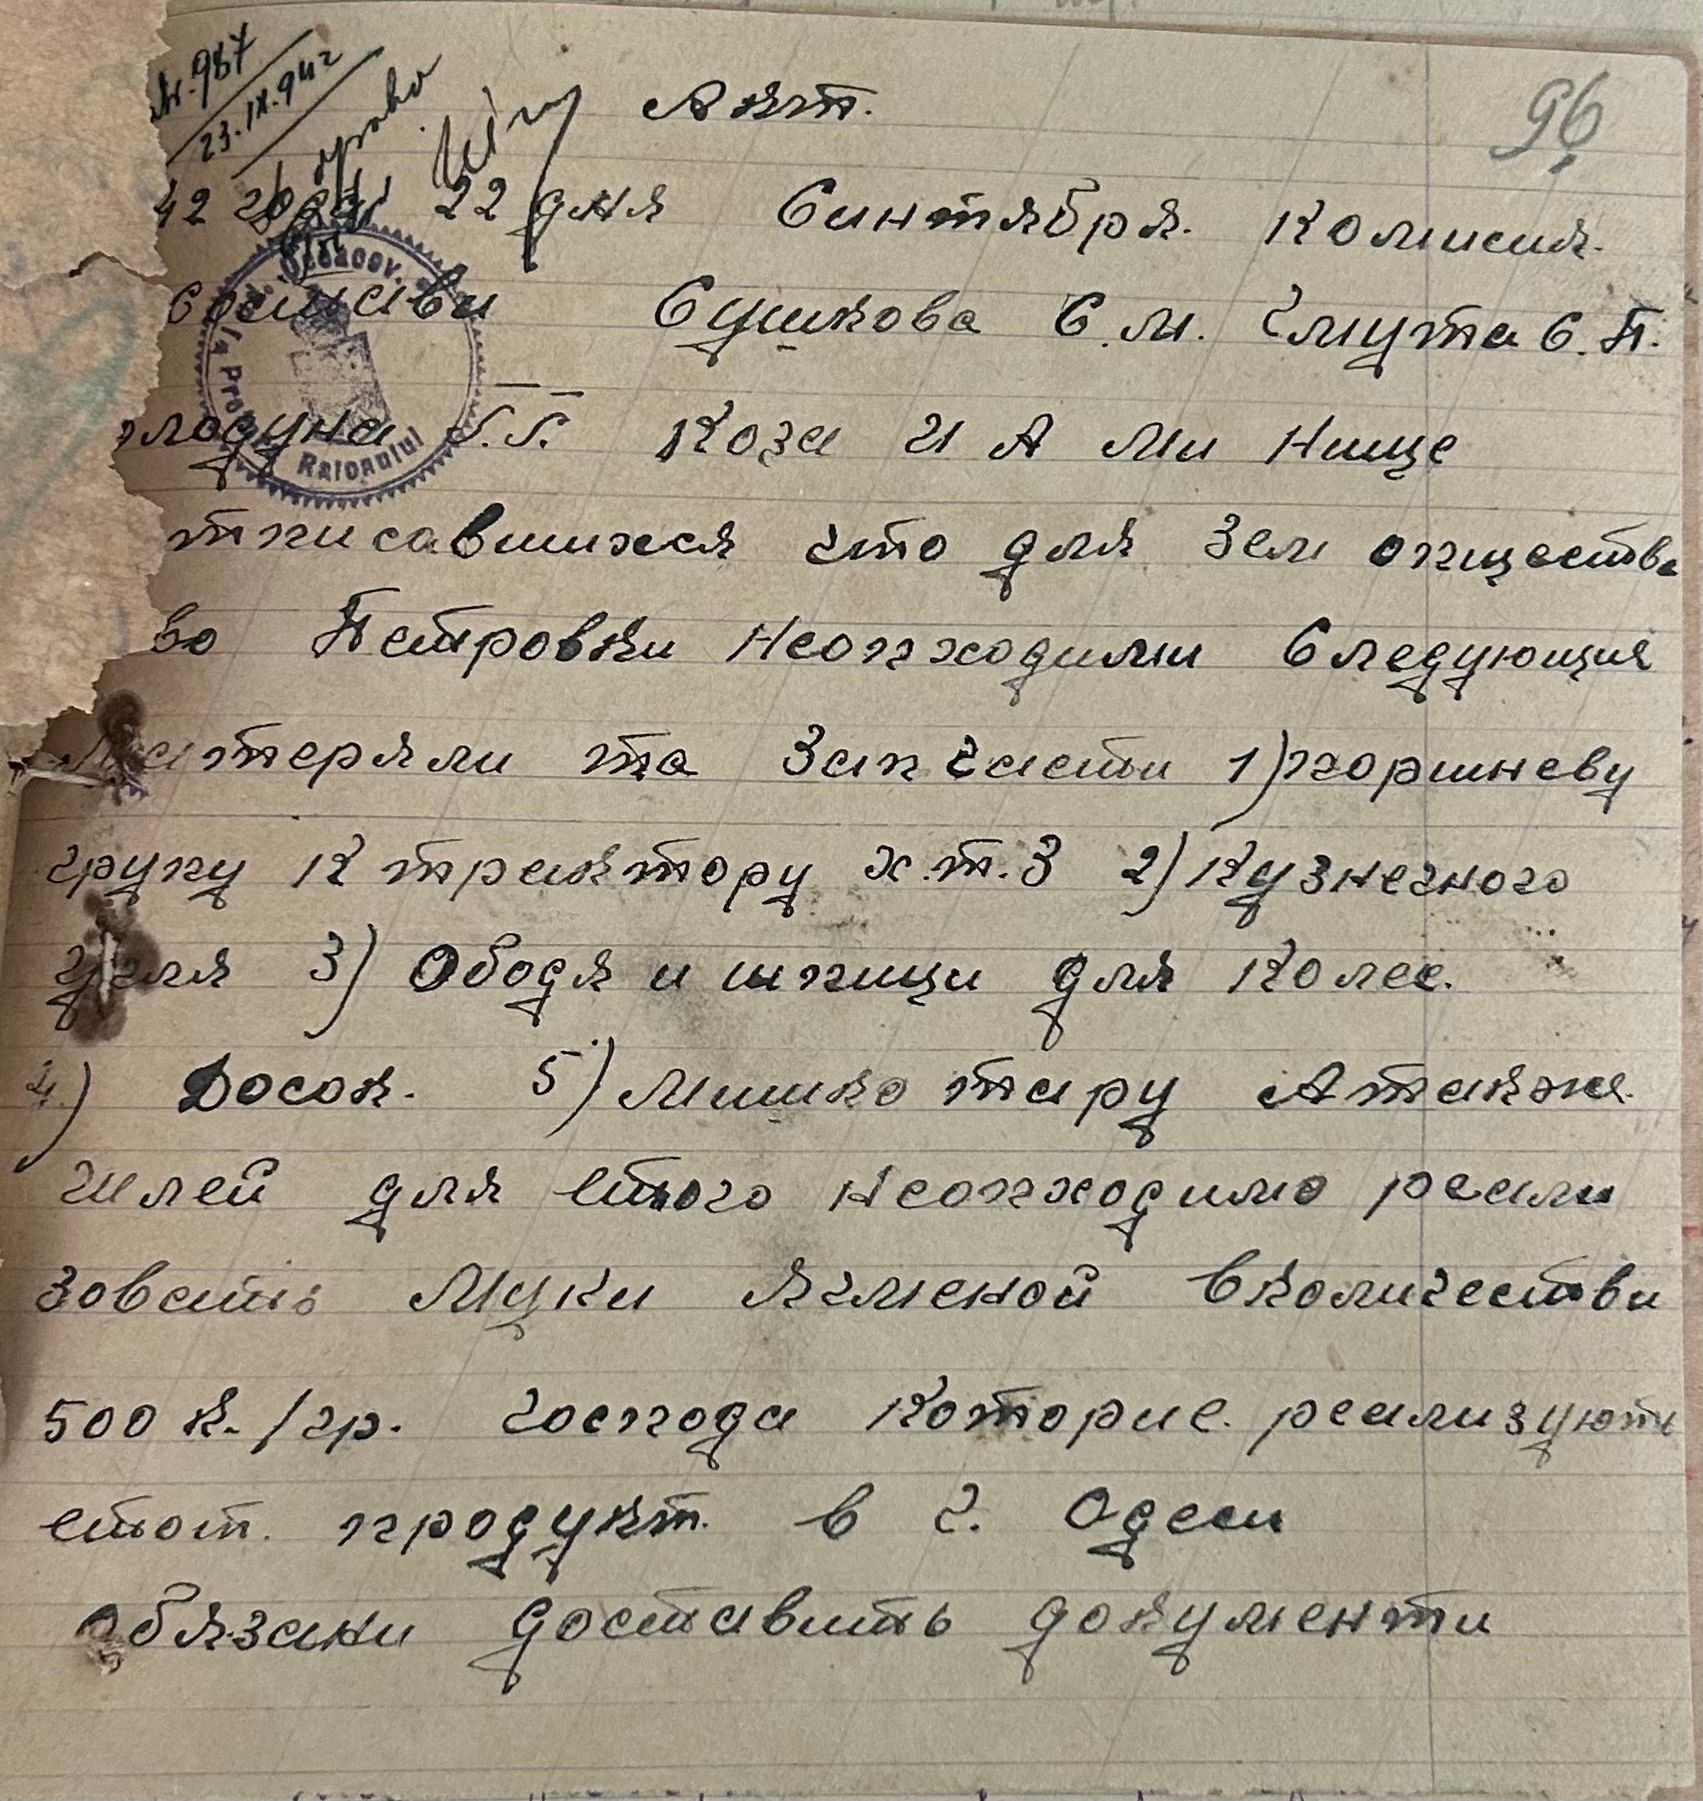 Nr. 987
23.IX.942
96
Акт.
42 года 22 дня Синтября. комисия.
состави Сушкова С.М. Чмута С.П.
лодуна Г.Г. Коза И А ми нище
тписавшихся что для Зем опщества
во Петровки Неопходими Следующия
Матеряли та Запчасти 1) поршневу
групу К трактору х.т.З 2) Кузнечного
угля 3) Ободя и шпици для колес.
4) Досок. 5) Мишко тару А также.
шлей для етого неопходимо реали
зовать Муки ячменой вколичестви
500 к./гр. господа Которие. реализують
етот. продукт. в г. Одеси
обязани доставить документи
Raionului